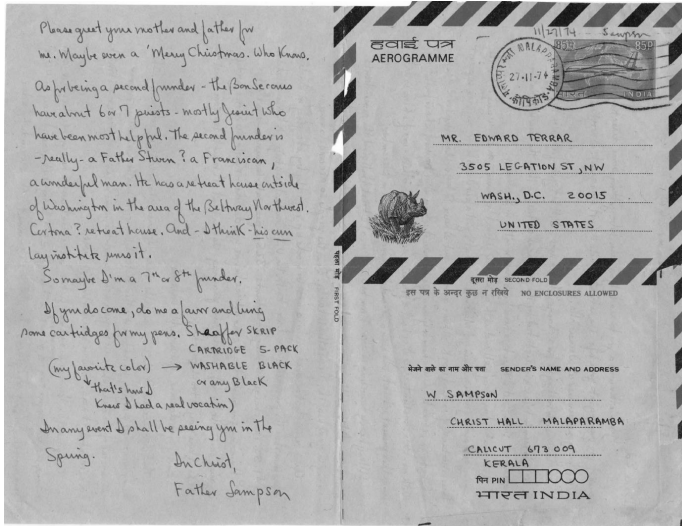 Please greet your mother and father for
me. Maybe even a 'Merry Christmas. Who Knows.
As for being a second funder - the Bon Secours
have about 6 or 7 priests - mostly Jesuit who
have been most helpful. The second funder is
- really - a Father Sturn? a Franciscan,
a wonderful man. He has a retreat house outside
of Washington in the area of the Beltway Northwest.
Cortona? retreat house. And - I think - his own
lay institute runs it.
So maybe I'm a 7th or 8th funder.
If you do come, do me a favor and bring
some cartridges for my pens. Sheaffer SKRIP
CARTRIDGE 5-PACK
(my favorite color) → WASHABLE BLACK
or any Black
that's how I
Knew I had a real vocation)
In any event I shall be seeing you in the
Spring.
In Christ,
Father Sampson
हवाई पत्र
AEROGRAMME
11/27/74 Sampson
MALAPARAMBA
27-11-74
कोषिकोड
85p 85p
भारत INDIA
MR. EDWARD TERRAR
3505 LEGATION ST, NW
WASH., D.C. 20015
UNITED STATES
पहला मोड़ FIRST FOLD
दूसरा मोड़ SECOND FOLD
इस पत्र के अन्दर कुछ न रखिये NO ENCLOSURES ALLOWED
भेजने वाले का नाम और पता SENDER'S NAME AND ADDRESS
W SAMPSON
CHRIST HALL MALAPARAMBA
CALICUT 673 009
KERALA
पिन PIN
भारत INDIA